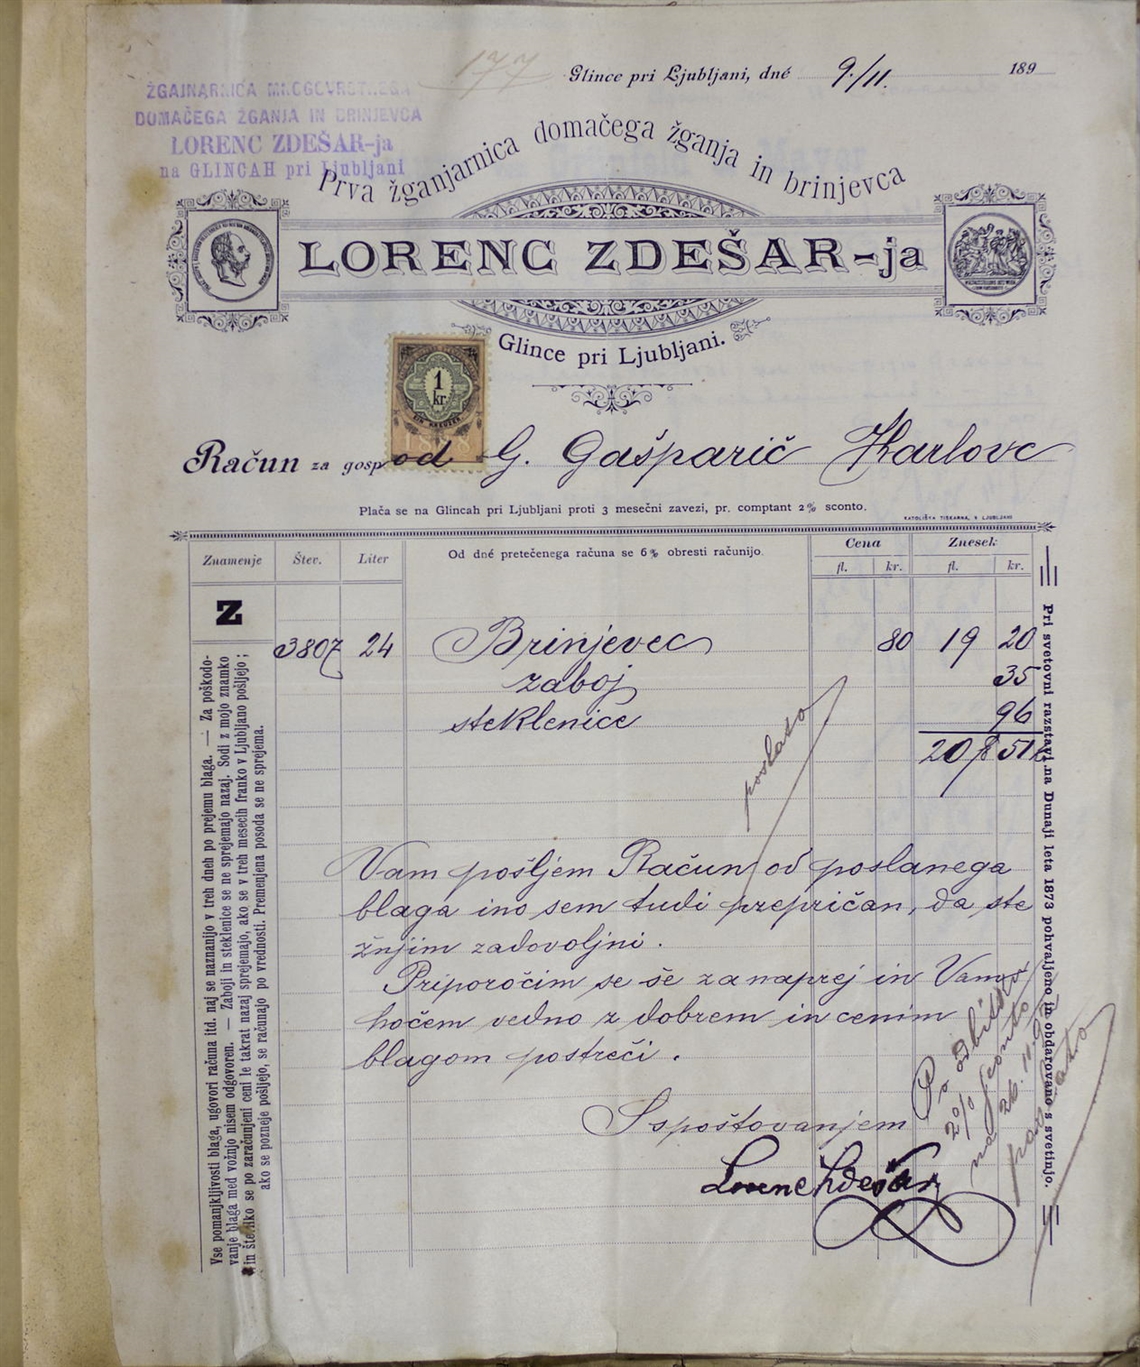 177
Glince pri Ljubljani, dné 9./11. 189
ŽGAJNARNICA MNOGOVRSTNEGA
DOMAČEGA ŽGANJA IN BRINJEVCA
LORENC ZDEŠAR-ja
na GLINCAH pri Ljubljani
Prva žganjarnica domačega žganja in brinjevca
LORENC ZDEŠAR-ja
Glince pri Ljubljani.
1
kr.
EIN KREUZER
Račun za gospod G. Gašparič Karlovc
Plača se na Glincah pri Ljubljani proti 3 mesečni zavezi, pr. comptant 2% sconto.
KATOLIŠKA TISKARNA, V LJUBLJANI
Znamenje Štev. Liter Od dné pretečenega računa se 6% obresti računijo. Cena Znesek
fl. kr. fl. kr.
Z
3807 24 Brinjevec 80 19 20
zaboj 35
steklenice 96
20 51
poslato
Vam pošljem Račun od poslanega
blaga ino sem tudi prepričan, da ste
žnjim zadovoljni.
Priporočim se še za naprej in Vam
hočem vedno z dobrem in cenim
blagom postreči.
S spoštovanjem
Lorenc Zdešar
2%
na 26. 11.
Vse pomanjkljivosti blaga, ugovori računa itd. naj se naznanijo v treh dneh po prejemu blaga. — Za poškodo-
vanje blaga med vožnjo nisem odgovoren. — Zaboji in steklenice se ne sprejemajo nazaj. Sodi z mojo znamko
in številko se po zaračunjeni ceni le takrat nazaj sprejemajo, ako se v treh mesecih franko v Ljubljano pošljejo;
ako se pozneje pošljejo, se računajo po vrednosti. Premenjena posoda se ne sprejema.
Pri svetovni razstavi na Dunaji leta 1873 pohvaljeno in obdarovano s svetinjo.